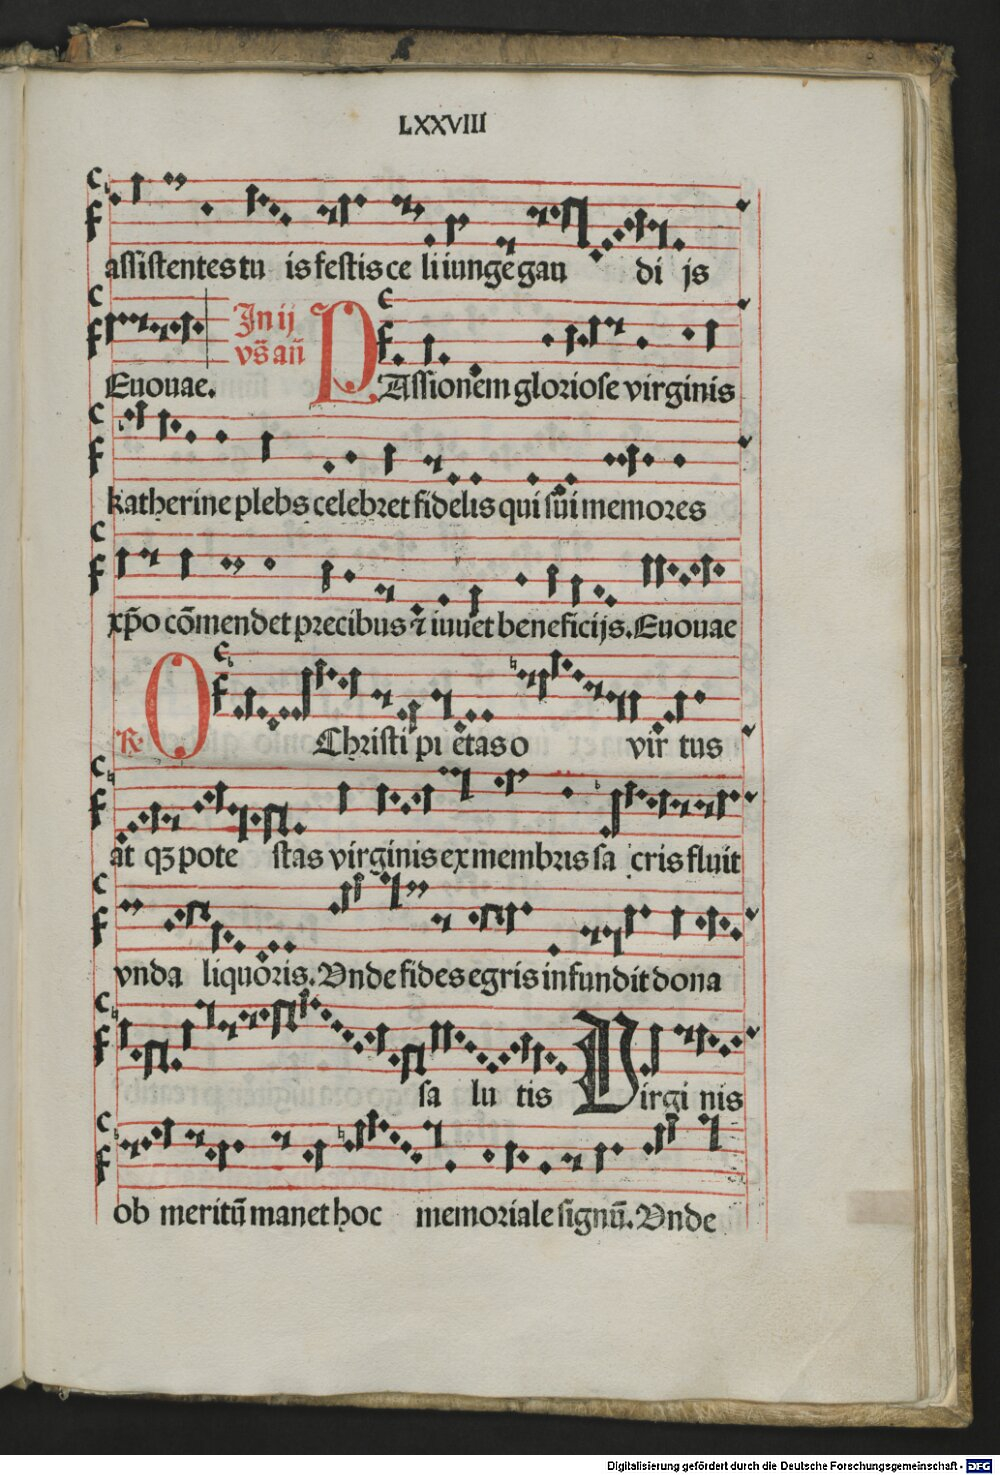 LXXVIII
assistentes tu is festis ce li iunge gau di js
Euouae. In ij
vs̄ an̄ PAssionem gloriose virginis
katherine plebs celebret fidelis qui sui memores
xp̄o cōmendet precibus ⁊ iuuet beneficijs. Euouae
R̃ O Christi pi etas o vir tus
at qꝫ pote stas virginis ex membris sa cris fluit
vnda liquoris. Vnde fides egris infundit dona
sa lu tis Virgi nis
ob meritū manet hoc memoriale signū. Vnde
Digitalisierung gefördert durch die Deutsche Forschungsgemeinschaft - DFG